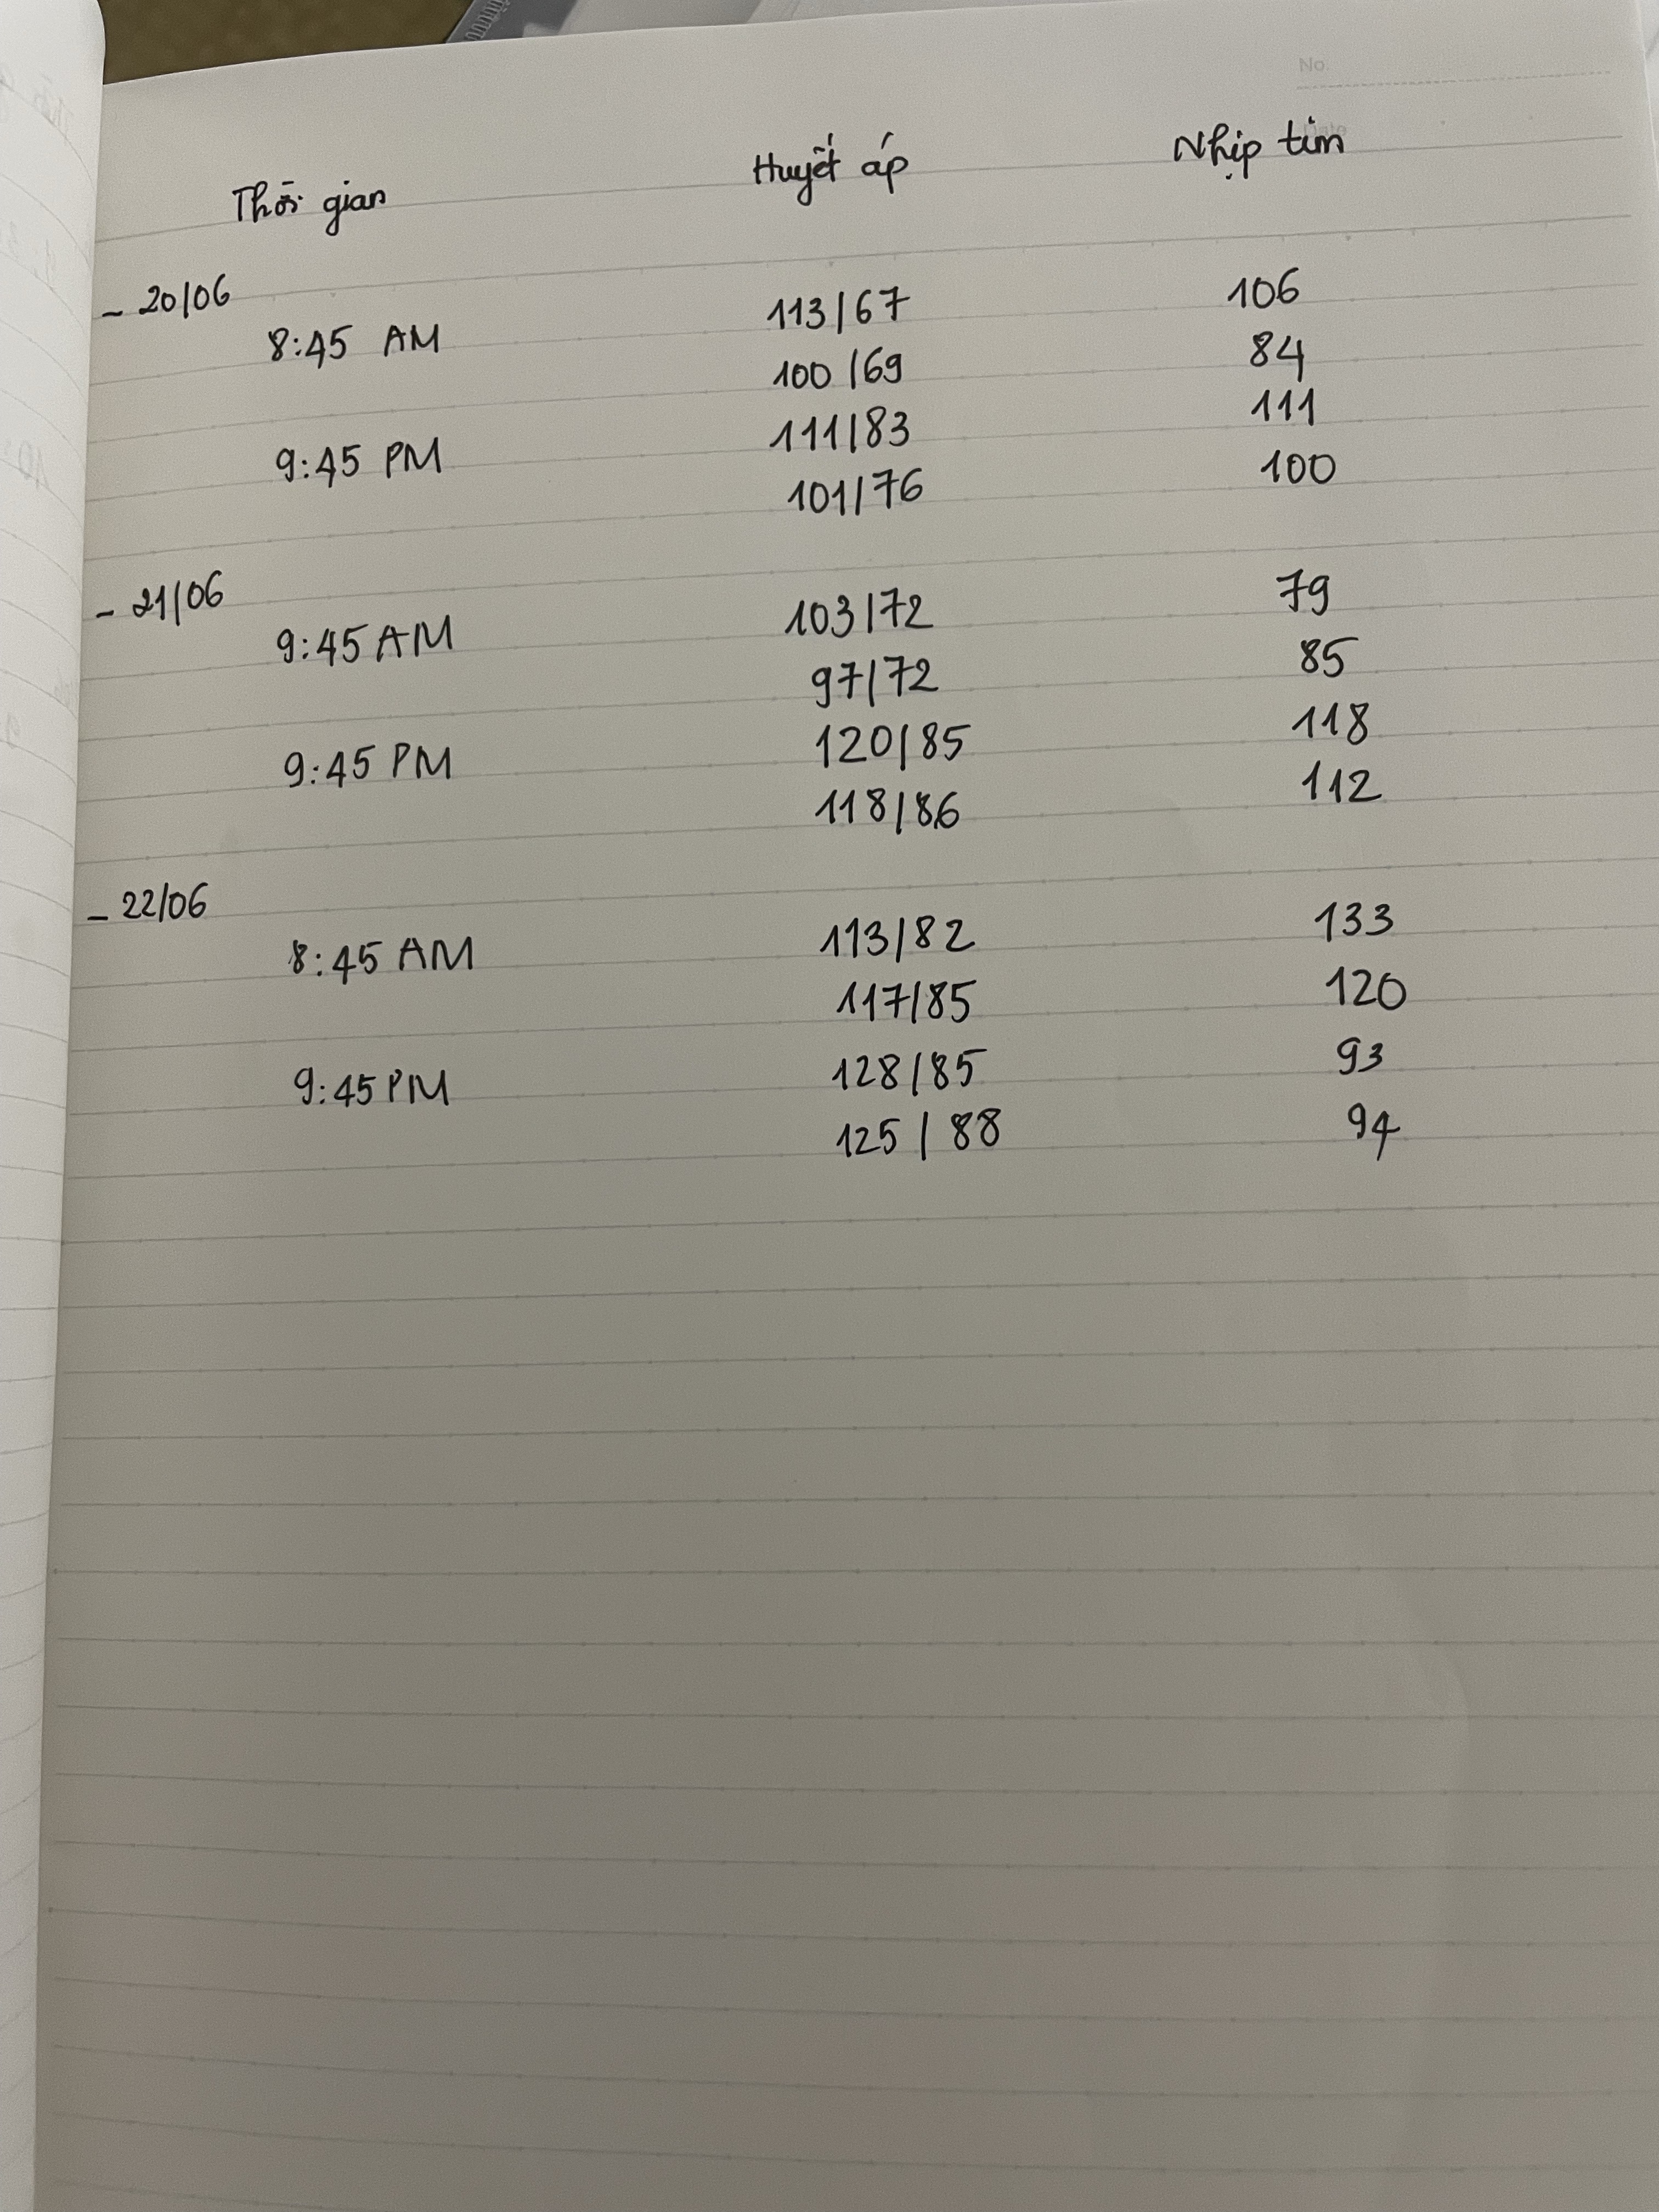 No.
Date
Thời gian Huyết áp Nhịp tim
- 20/06
8:45 AM 113/67 106
100/69 84
9:45 PM 111/83 111
101/76 100
- 21/06
9:45 AM 103/72 79
97/72 85
9:45 PM 120/85 118
118/86 112
- 22/06
8:45 AM 113/82 133
117/85 120
9:45 PM 128/85 93
125/88 94